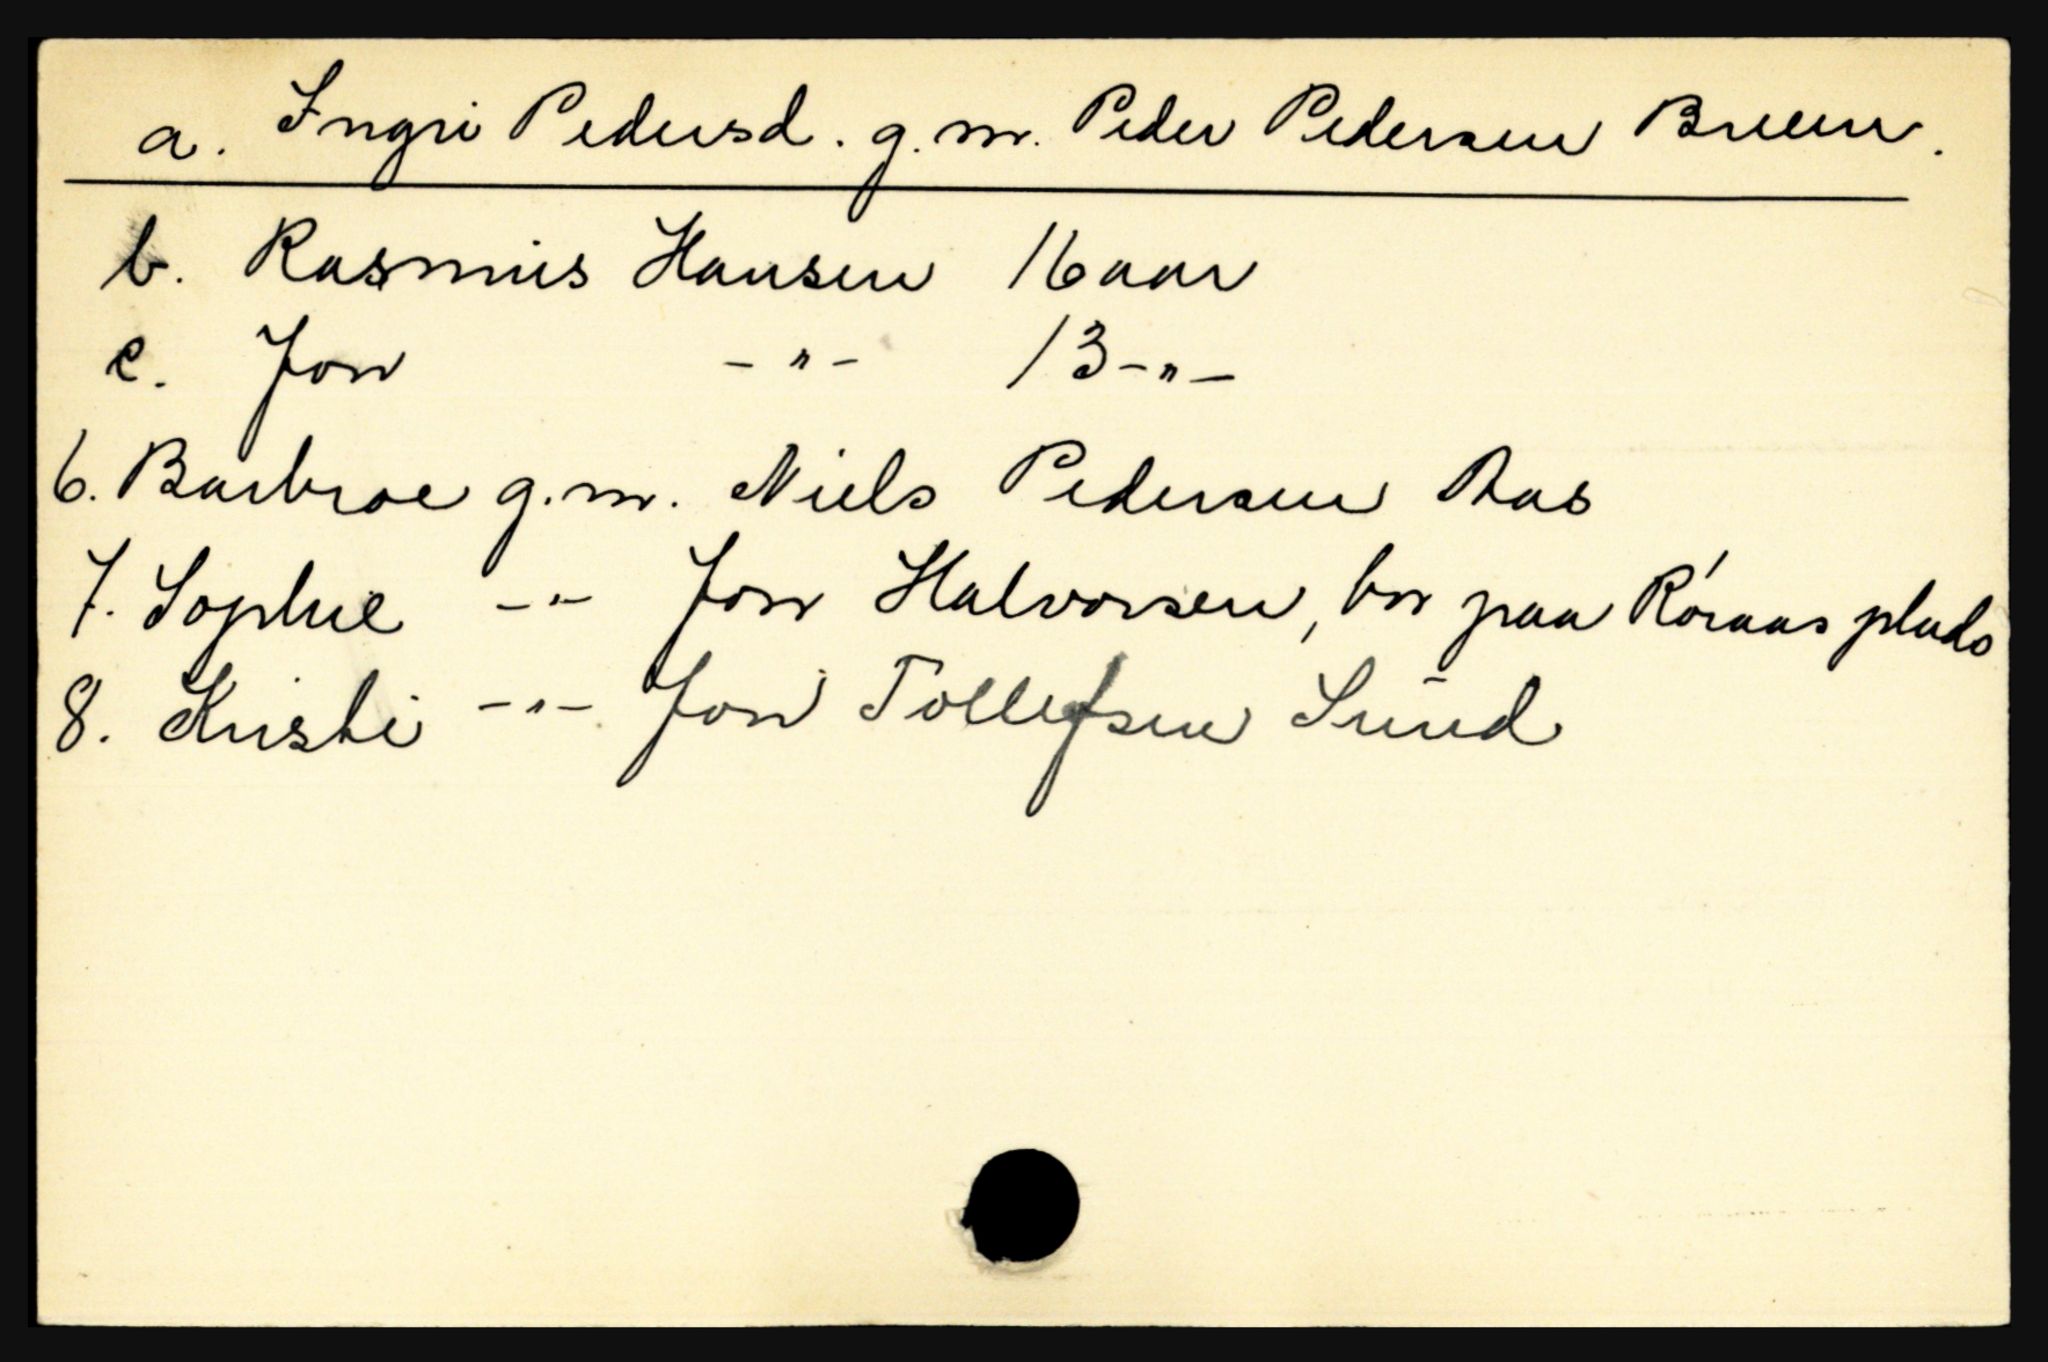 a. Ingri Pedersd. g.m. Peder Pedersen Breen.
b. Rasmus Hansen 16 aar
c. Jon -"- 13 -"-
6. Barbroe g.m. Niels Pedersen Aas
7. Sophie -"- Jon Halvorsen, bor paa Röraas plads
8. Kristi -"- Jon Tollefsen Sund